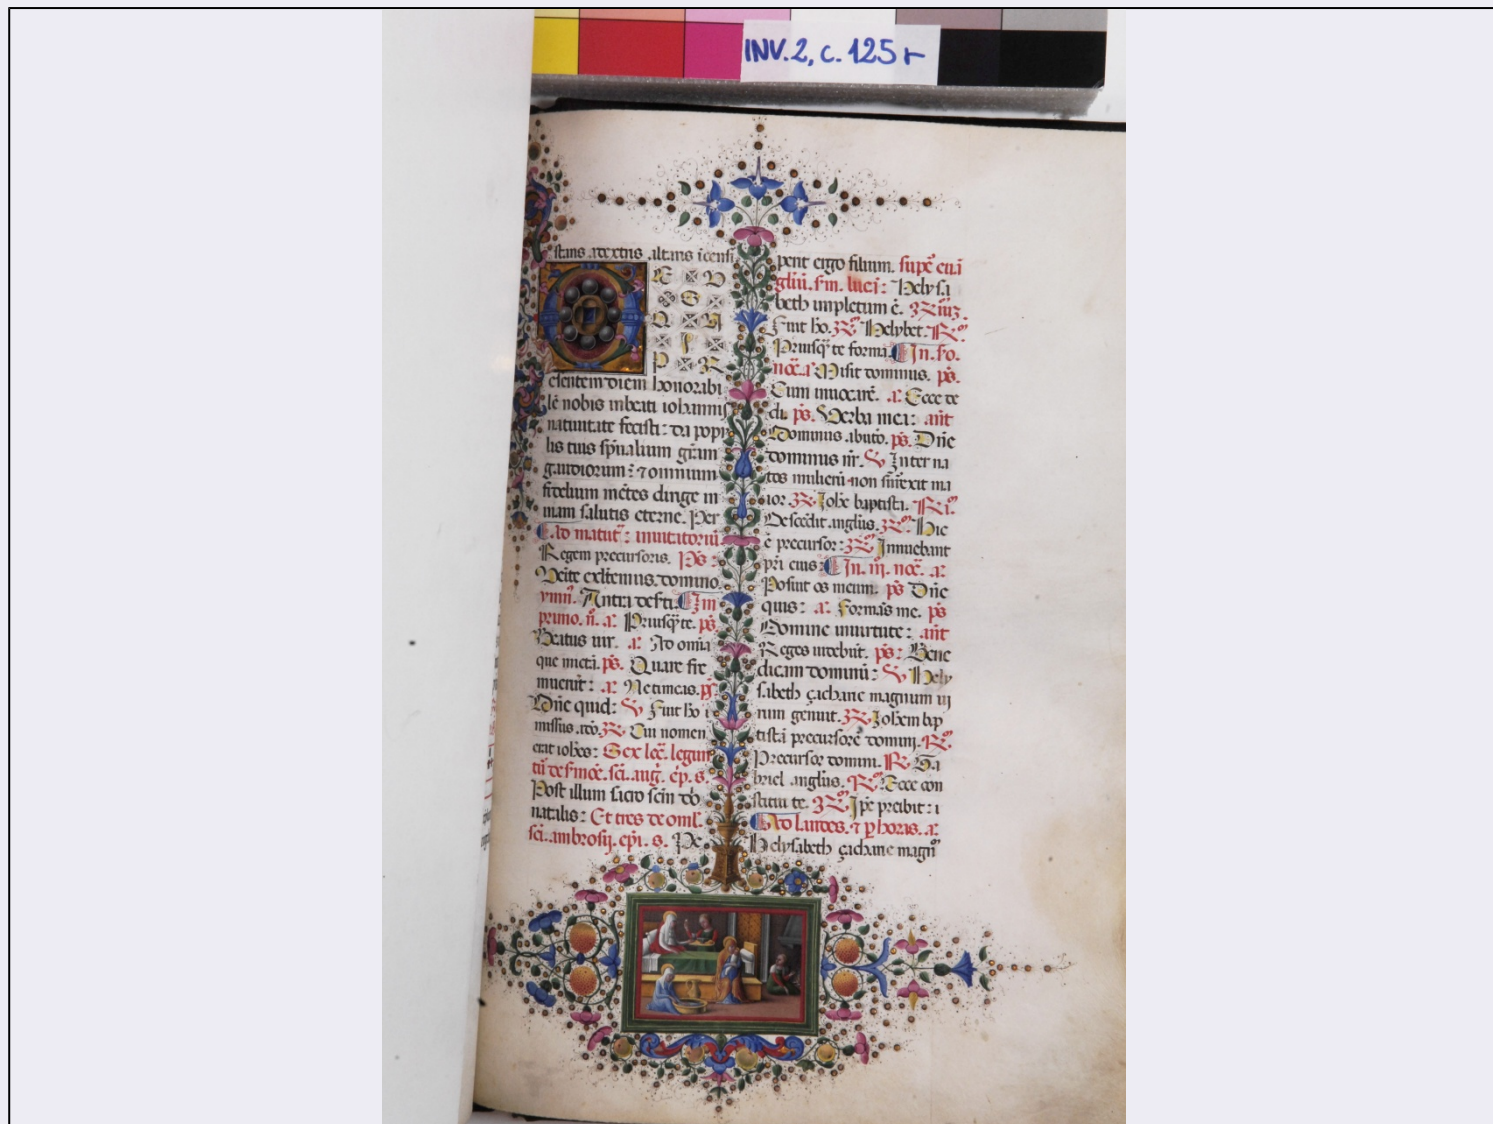 INV. 2, c. 125 r
stans a dextris altaris icensi
D E V S
Q V I
P R
esentem diem honorabi
lē nobis in beati iohannis
natiuitate fecisti: da popu
lis tuis sp̄ualium grām
gaudiorum: ⁊ omnium
fidelium mētes dirige in
uiam salutis eterne. Per
Ad matut̄: inuitatoriū
Regem precursoris. Ps̄
Uenite exultemus domino.
ymn̄. Antra deserti. In
primo. n̄. a. Priusq̄ te. ps̄
Beatus uir. a. Ad omia
que mictā. ps̄. Quare fre
muerūt: a. Ne timeas. ps̄
Dn̄e quid: V Fuit hō
missus a dō. R Cui nomen
erat ioh̄es: Sex lec̄. legun
tur de s̄mōe. scī. aug. ep̄i. s.
Post illum sacro scm̄ dō
natalis: Et tres de oml̄.
scī. ambrosij. ep̄i. s. Pe
perit ergo filium. sup̄ euā
gliū. s̄m. lucā: Helysa
beth impletum ē. R iij
Fuit hō. R Helyzabet. R
Priusq̄ te formā. In. so.
noc̄. a Misit dominus. ps.
Cum inuocarē. a. Ecce de
di. ps. Uerba mea: an̄t
Dominus ab uto. ps. Dn̄e
dominus nr̄. V Inter na
tos mulierū non surrexit ma
ior. R Ioh̄e baptista. R
Descēdit anglus. R Hic
ē precursor: R Innuebant
pr̄i eius: In. iij. noc̄. a.
Posuit os meum. ps Dn̄e
quis: a. Formās me. ps
Domine in uirtute: an̄t
Reges uidebūt. ps: Bene
dicam dominū: V Hely
sabeth çacharie magnum ui
rum genuit. R Ioh̄em bap
tistā precursorē domini. R
Precursor domini. R Ga
briel anglus. R Ecce con
stitui te. R Ip̄e preibit: a
Ad laudes. ⁊ p horas. a.
Helysabeth çacharie magn̄